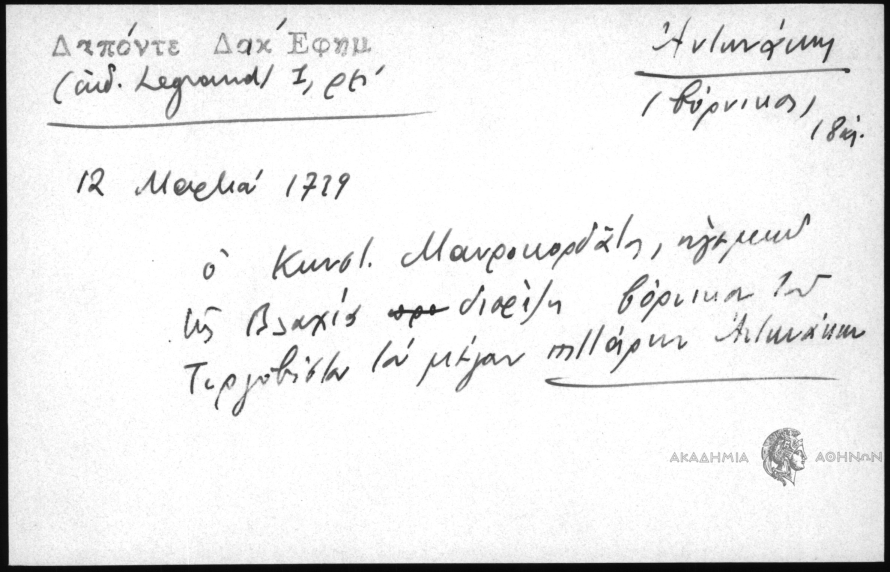 Δαπόντε Δακ Εφημ
(ἐκδ. Legrand) I, ρξ΄
Ἀντωνάκης
(βόρνικος)
18 αἰ.
12 Μαρτίου 1739
ὁ Κωνστ. Μαυροκορδᾶτος, ἡγεμὼν
τῆς Βλαχίας διορίζει βόρνικον τοῦ
Τεργοβίστου τὸν μέγαν πιτάρην Ἀντωνάκην
ΑΚΑΔΗΜΙΑ ΑΘΗΝΩΝ